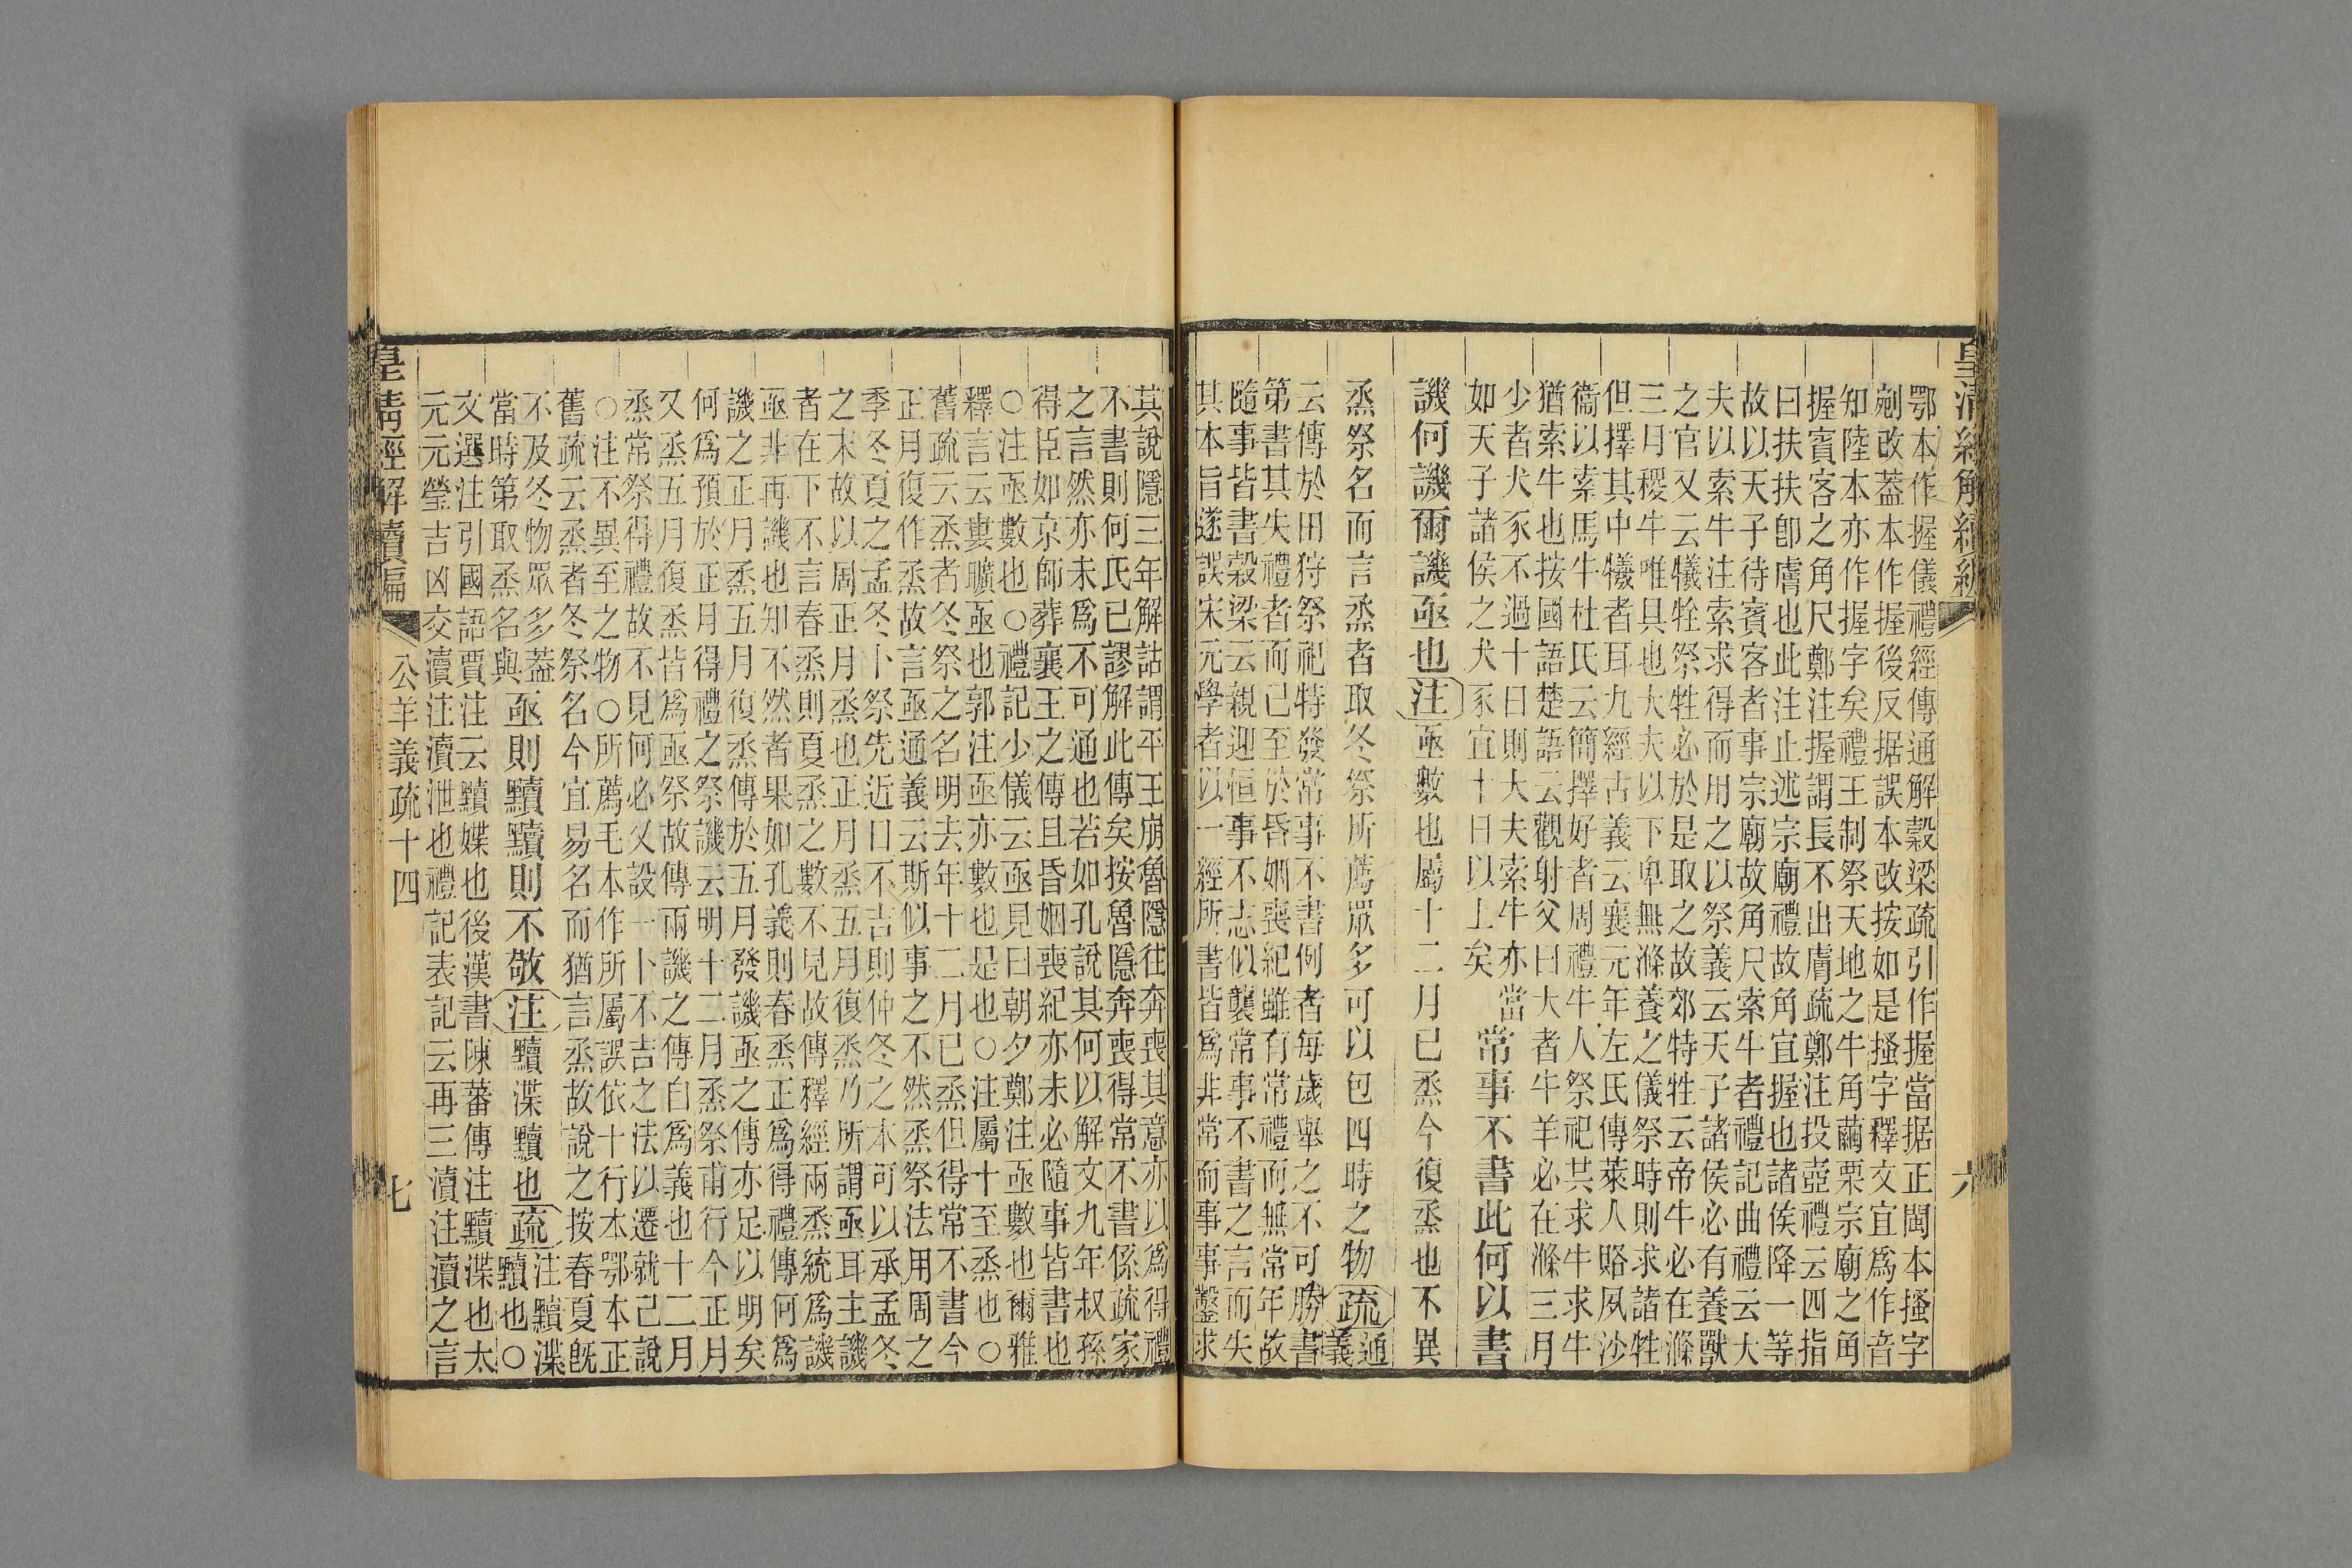 皇清經解續編
六
鄂本作握儀禮經傳通解穀梁疏引作握當据正閩本搔字
剜改葢本作握後反据誤本改按如是搔字釋文宜爲作音
知陸本亦作握字矣禮王制祭天地之牛角繭栗宗廟之角
握賓客之角尺鄭注握謂長不出膚疏鄭注投壺禮云四指
曰扶扶卽膚也此注止述宗廟禮故角宜握也諸侯降一等
故以天子待賓客者事宗廟故角尺索牛者禮記曲禮云大
夫以索牛注索求得而用之以祭義云天子諸侯必有養獸
之官又云犧牷祭牲必於是取之故郊特牲云帝牛必在滌
三月稷牛唯具也大夫以下卑無滌養之儀祭時則求諸牲
但擇其中犧者耳九經古義云襄元年左氏傳萊人賂夙沙
衞以索馬牛杜氏云簡擇好者周禮牛人祭祀共求牛求牛
猶索牛也按國語楚語云觀射父曰大者牛羊必在滌三月
少者犬豕不過十日則大夫索牛亦當
如天子諸侯之犬豕宜十日以上矣
常事不書此何以書
譏何譏爾譏亟也注亟數也屬十二月已烝今復烝也不異
烝祭名而言烝者取冬祭所薦眾多可以包四時之物疏通義
云傳於田狩祭祀特發常事不書例者每歲舉之不可勝書
第書其失禮者而已至於昏姻喪紀雖有常禮而無常年故
隨事皆書穀梁云親迎恒事不志似襲常事不書之言而失
其本旨遂誤宋元學者以一經所書皆爲非常而事事鑿求
其說隱三年解詁謂平王崩魯隱往奔喪其意亦以爲得禮
不書則何氏已謬解此傳矣按魯隱奔喪得常不書係疏家
之言然亦未爲不可通也若如孔說其何以解文九年叔孫
得臣如京師葬襄王之傳且昏姻喪紀亦未必隨事皆書也
○注亟數也○禮記少儀云亟見曰朝夕鄭注亟數也爾雅
釋言云婁曠亟也郭注亟亦數也是也○注屬十至烝也○
舊疏云烝者冬祭之名明去年十二月已烝但得常不書今
正月復作烝故言亟通義云斯似事之不然烝祭法用周之
季冬夏之孟冬卜祭先近日不吉則仲冬之本可以承孟冬
之末故以周正月烝也正月烝五月復烝乃所謂亟耳主譏
者在下不言春烝則夏烝之數不見故傳釋經兩烝統爲譏
亟非再譏也知不然者果如孔義則春烝正爲得禮傳何爲
譏之正月烝五月復烝傳於五月發譏亟之傳亦足以明矣
何爲預於正月得禮之祭譏云明十二月烝祭甫行今正月
又烝五月復烝皆爲亟祭故傳兩譏之傳自爲義也十二月
烝常祭得禮故不見何必父設一卜不吉之法以遷就己說
○注不異至之物○所薦毛本作所屬誤依十行本鄂本正
舊疏云烝者冬祭名今宜易名而猶言烝故說之按春夏旣
不及冬物眾多葢
當時第取烝名與
亟則黷黷則不敬注黷渫黷也疏注黷渫黷也○
文選注引國語賈注云黷媟也後漢書陳蕃傳注黷渫也太
元元瑩吉凶交瀆注瀆泄也禮記表記云再三瀆注瀆之言
皇清經解續編
公羊義疏十四
七